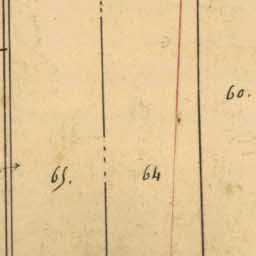 60.
65. 64